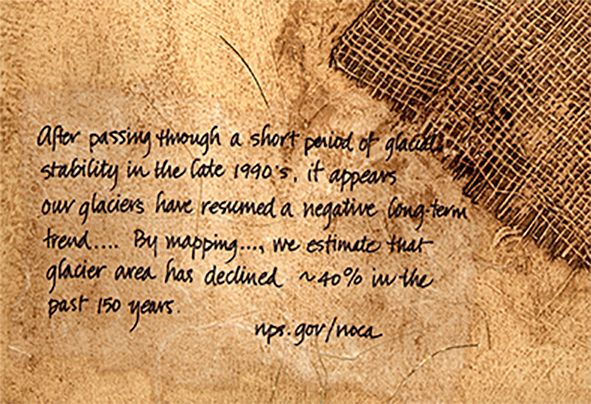 After passing through a short period of glacial
stability in the late 1990's, it appears
our glaciers have resumed a negative long-term
trend.... By mapping..., we estimate that
glacier area has declined ~40% in the
past 150 years.
nps.gov/noca